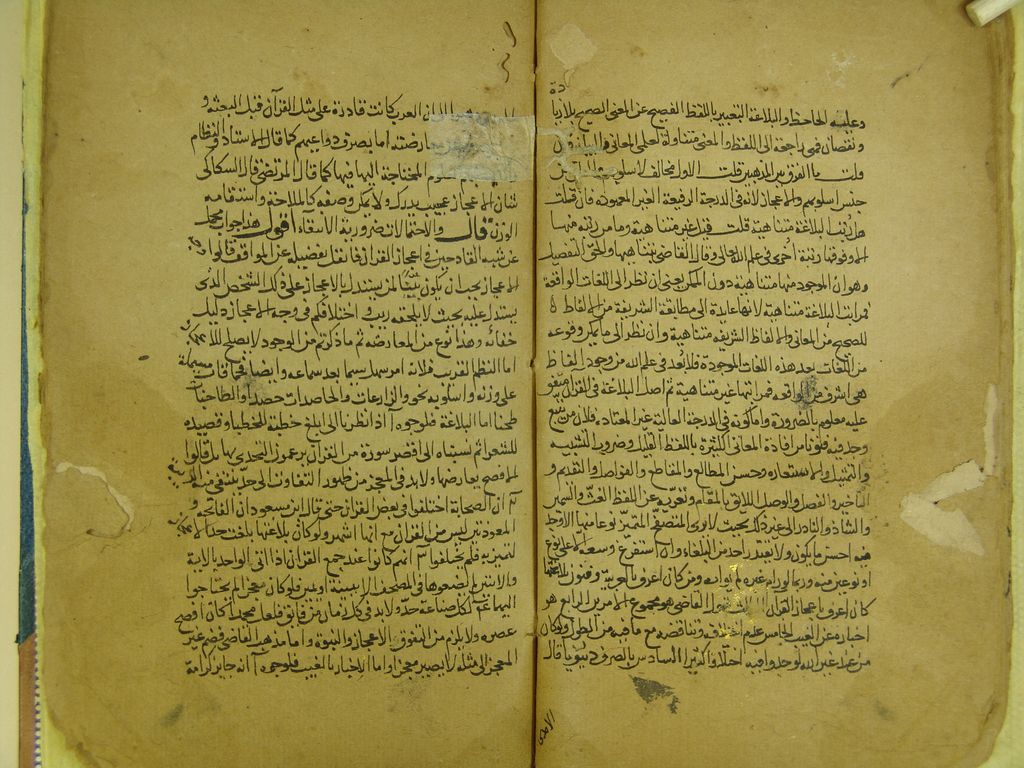 دة
وعليه الجاحظ والبلاغة التعبير باللفظ الفصيح عن المعنى الصحيح بلا زيا
ونقصان فهى راجعة الى اللفظ والمعنى متناولة لعلمى المعانى والبيان فان
قلت ما الفرق بين المذهبين قلت الاول مخالف لاسلوبه
جنس اسلوبهم والاعجاز لانه فى الدرجة الرفيعة الغير المعهودة فان قلت
هل رتب البلاغة متناهية قلت قيل غير متناهية وما من رتبة منها
الا وفوقها رتبة أخرى فى علم الله تعالى وقال القاضى بتناهيها والحق التفصيل
وهو ان الموجود منها متناهية دون الممكن يعنى ان نظر الى اللغات الواقعة
فمراتب البلاغة متناهية لانها عايدة الى مطابقة الشريفة من الالفاظ
للصحيح من المعانى والالفاظ الشريفة متناهية وان نظر الى ما يمكن وقوعه
من اللغات بعد هذه اللغات الموجودة فلا بعد فى علم الله من وجود الفاظ
هى اشرف من الواقعة فمراتبها غير متناهية ثم اصل البلاغة فى القران متفق
عليه معلوم بالضرورة واما كونه فى الدرجة العالية غير المعتادة فلان من تتبع
وجد فيه فنونا من افادة المعانى الكثيرة باللفظ القليل وضروب التشبيه
والتمثيل والاستعارة وحسن المطالع والمقاطع والفواصل والتقديم و
التاخير والفصل والوصل اللايق بالمقام وتعريه عن اللفظ الغث
والشاذ والنادر الى غير ذلك بحيث لا يرى المتصفح المتميز نوعا منها الا وجد
فيه احسن ما يكون ولا يقدر احد من البلغاء وان استفرغ وسعه الا على نوع
او نوعين منه وربما لو رام غيره لم يواته ومن كان اعرف بالعربية وفنون
كان اعرف باعجاز القران القاضى هو مجموع الامرين الرابع هو
اخباره عن الغيب الخامس عدم اختلافه وتناقضه مع ما فيه من الطول ولو كان
من عند غير الله لوجدوا فيه اختلافا كثيرا السادس بالصرفة
الامدى
العرب كانت قادرة على مثل القرآن قبل البعثة و
معارضته اما بصرف دواعيهم كما قال الاستاذ والنظام
العلوم المحتاجة اليها فيها كما قال المرتضى قال السكاكى
شان الاعجاز عجيب يدرك ولا يمكن وصفه كالملاحة واستقامة
الوزن قال والاحتمالات ضرورية الانتفاء اقول هذا جواب مجمل
عن شبه القادحين فى اعجاز القران فلنقل تفصيله عن المواقف قالوا وجه
الاعجاز يجب ان يكون بينا لمن يستدل به بالاعجاز على ذلك الشخص الذى
يستدل عليه بحيث لا يلحقه ريب واختلافكم فى وجه الاعجاز دليل
خفائه وهذا نوع من المعارضة ثم ما ذكرتم من الوجوه لا يصلح للاعجاز
اما النظم الغريب فلانه امر سهل سيما بعد سماعه وايضا فحماقات مسيلمة
على وزنه واسلوبه نحو والزارعات والحاصدات حصدا والطاحنات
طحنا اما البلاغة فلوجوه آ اذا نظرنا الى ابلغ خطبة للخطباء وقصيدة
للشعراء ثم نسبناه الى اقصر سورة من القران يزعمون التحدى بها
لم ان الصحابة اختلفوا فى بعض القران حتى قال ابن مسعود ان الفاتحة و
المعوذتين ليس من القران مع انها اشهر ولو كان بلاغتها بلغت حد الاعجاز
لتميز به فلم يختلفوا انهم كانوا عند جمع القران اذا اتى الواحد بالاية
والآيتين لم يضعوها فى المصحف الا ببينة او يمين فلو كان معجزا لم يحتاجوا
اليهما لكل صناعة حد ولا بد فى كل زمان من فايق فلعل محمدا كان افصح
عصره ولا يلزم من التفوق الاعجاز والنبوة واما مذهب القاضى فضم غير
المعجز الى مثله لا يصير معجزا واما الاخبار بالغيب فلوجوه آ انه جايز كرامة